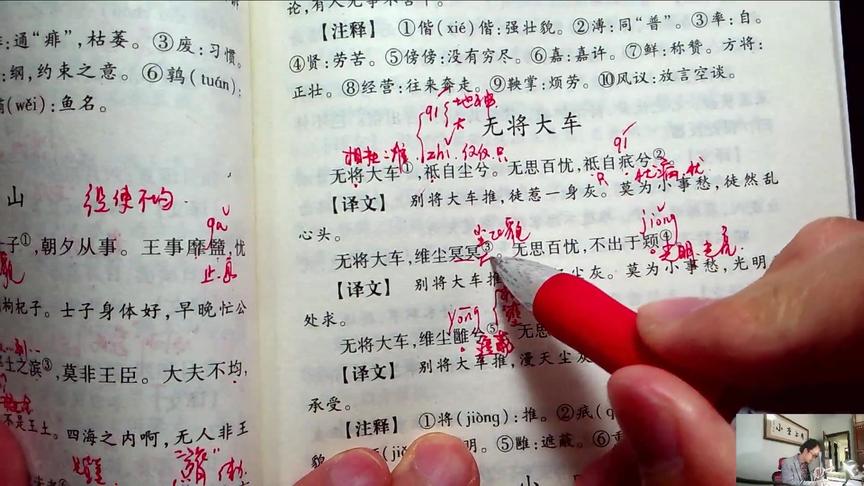 :通“痱”,枯萎。③废:习惯。
:纲,约束之意。⑥鹑(tuán):
(wěi):鱼名。
山
役使不均
gǔ
士子①,朝夕从事。王事靡盬,忧
止息
枸杞子。士子身体好,早晚忙公
土之滨③,莫非王臣。大夫不均,
不是王土。四海之内啊,无人非王
论,有人无事不言不
【注释】 ①偕(xié)偕:强壮貌。②溥:同“普”。③率:自。
④贤:劳苦。⑤傍傍:没有穷尽。⑥嘉:嘉许。⑦鲜:称赞。方将:
正壮。⑧经营:往来奔走。⑨鞅掌:烦劳。⑩风议:放言空谈。
qí 地神
大
zhǐ 仅仅 只
无将大车
qí
无将大车①,祇自尘兮。无思百忧,祇自疧兮②。
忧病 忧
【译文】 别将大车推,徒惹一身灰。莫为小事愁,徒然乱
心头。
jiǒng
无将大车,维尘冥冥③。无思百忧,不出于颎④
光明
【译文】 别将大车推
尘灰。莫为小事愁,光明
处求。
yōng
无将大车,维尘雝兮⑤
无思
遮蔽
【译文】 别将大车推,漫天尘灰
承受。
【注释】 ①将(jiāng):推。②疧(q
明。⑤雝:遮蔽。⑥重